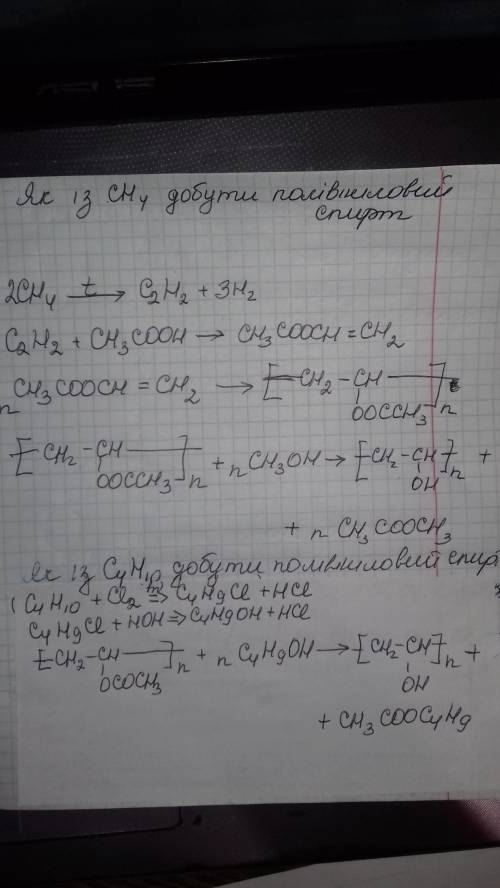 Як із CH4 добути полівініловий
спирт
2CH4 —t→ C2H2 + 3H2
C2H2 + CH3COOH → CH3COOCH = CH2
n CH3COOCH = CH2 → [—CH2 – CH—]n
OOCCH3
[—CH2 – CH—]n + n CH3OH → [CH2 – CH]n +
OOCCH3 OH
+ n CH3COOCH3
Як із C4H10 добути полівініловий спирт
( C4H10 + Cl2 ⇒ C4H9Cl + HCl
C4H9Cl + HOH ⇒ C4H9OH + HCl
[—CH2 – CH—]n + n C4H9OH → [CH2 – CH]n +
OCOCH3 OH
+ CH3COOC4H9